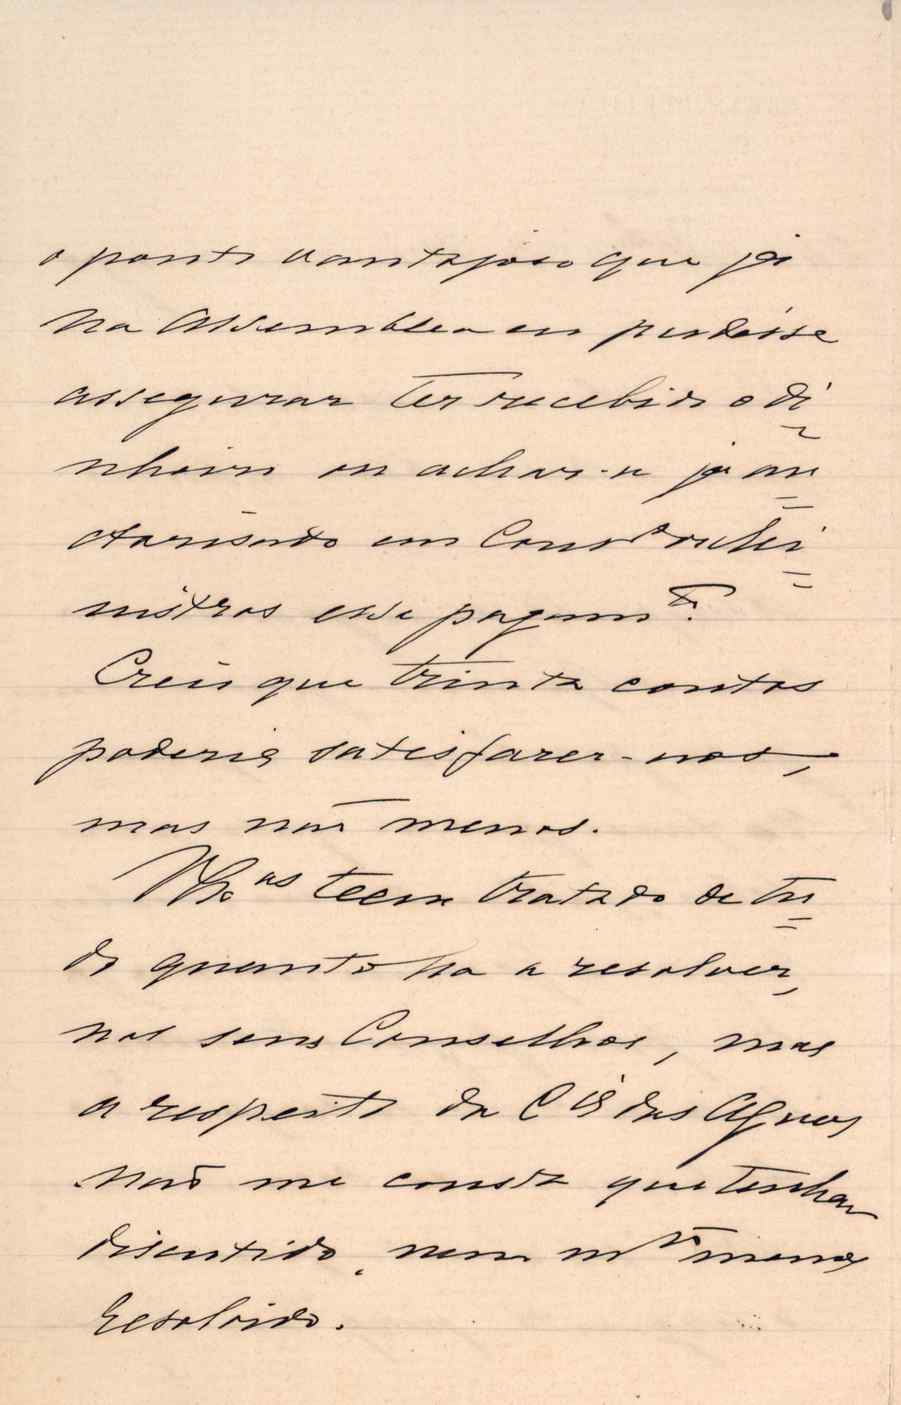 o ponto vantajoso que já
na Assemblea eu pudésse
assegurar ter recebido o di
nheiro ou achar-se já au
ctorisado em Cons.º dos Mi
nistros esse pagam.to.
Creio que trinta contos
poderia satisfazer-nos,
mas não menos.
V. Ex.as teem tratado de tu
do quanto ha a resolver,
nos seus Conselhos, mas
a respeito da C.ia das Aguas
não me consta que tenham
discutido, nem m.to menos
resolvido.